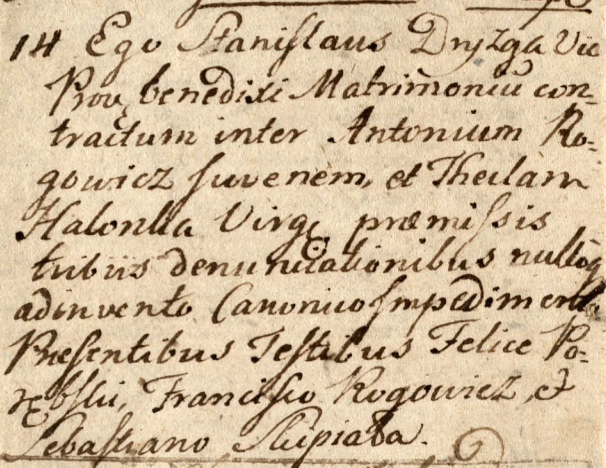 14 Ego Stanislaus Dryzga Vic
Provę benedixi Matrimoniū con-
tractum inter Antonium Ro-
gowicz juvenem, et Theclam
Halonka Virgę præmissis
tribus denuntiationibus nulloq
adinvento Canonico Impedimento
Presentibus Testibus Felice Po-
rębski, Francisco Rogowicz, et
Sebastiano